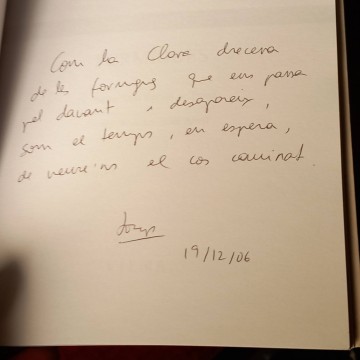 Com la Clara drecera
de les formigues que ens passa
pel davant i desapareix,
som el temps, en espera,
de veure'ns el cos caminat.
19/12/06